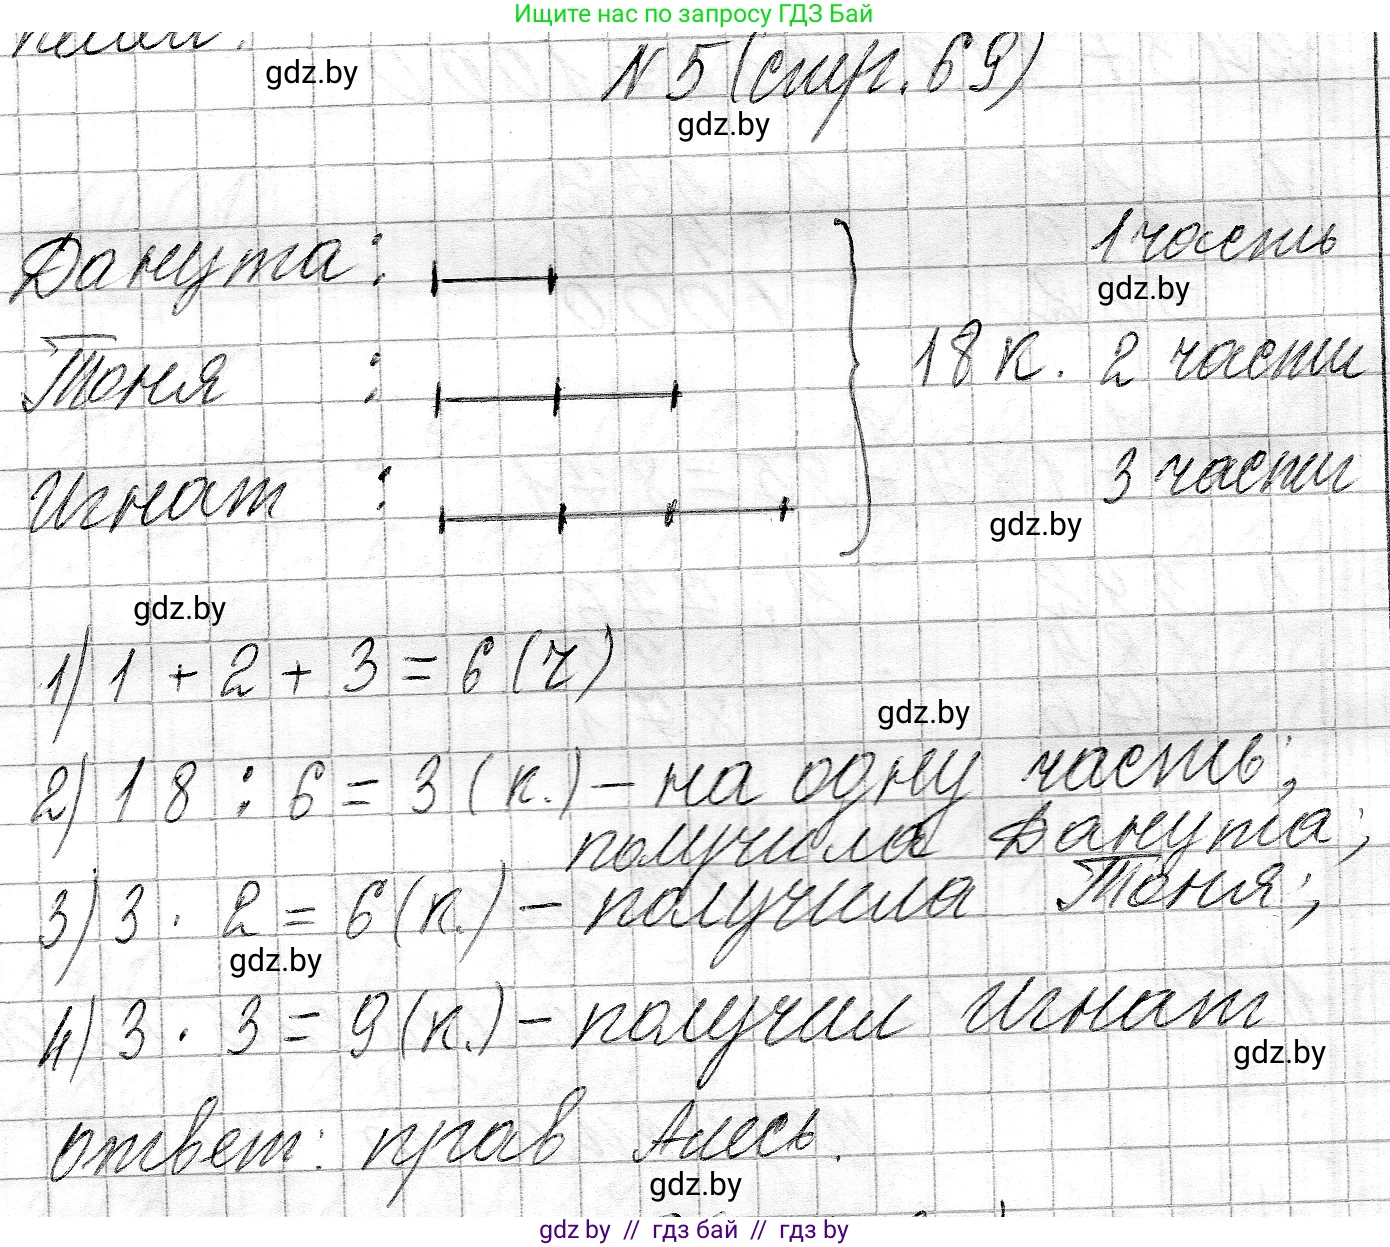 Ищите нас по запросу ГДЗ Бай
gdz.by
N 5 (стр. 69)
gdz.by
Данута: 1 часть
gdz.by
Тоня : 18 к. 2 части
Игнат : 3 части
gdz.by
gdz.by
1) 1 + 2 + 3 = 6 (ч)
gdz.by
2) 18 : 6 = 3 (к.) – на одну часть;
получила Данута;
3) 3 · 2 = 6 (к.) – получила Тоня;
gdz.by
4) 3 · 3 = 9 (к.) – получил Игнат
gdz.by
ответ: прав Алесь.
gdz.by
gdz by // гдз бай // гдз by